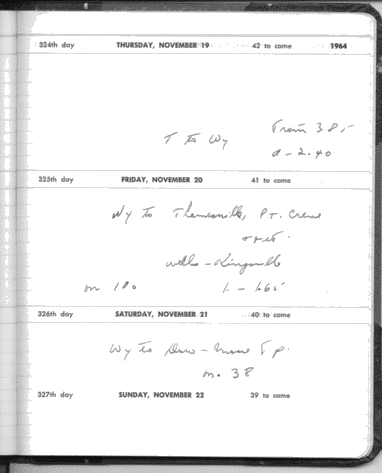 324th day THURSDAY, NOVEMBER 19 42 to come 1964
T to Wy Train 3.85
d - 2.40
325th day FRIDAY, NOVEMBER 20 41 to come
Wy to Thamesville, Pt. Crewe
+ ret.
wells - Kingsville
m 180 L - 1.65
326th day SATURDAY, NOVEMBER 21 40 to come
Wy to Daw - Moore 5 p.
m. 38
327th day SUNDAY, NOVEMBER 22 39 to come